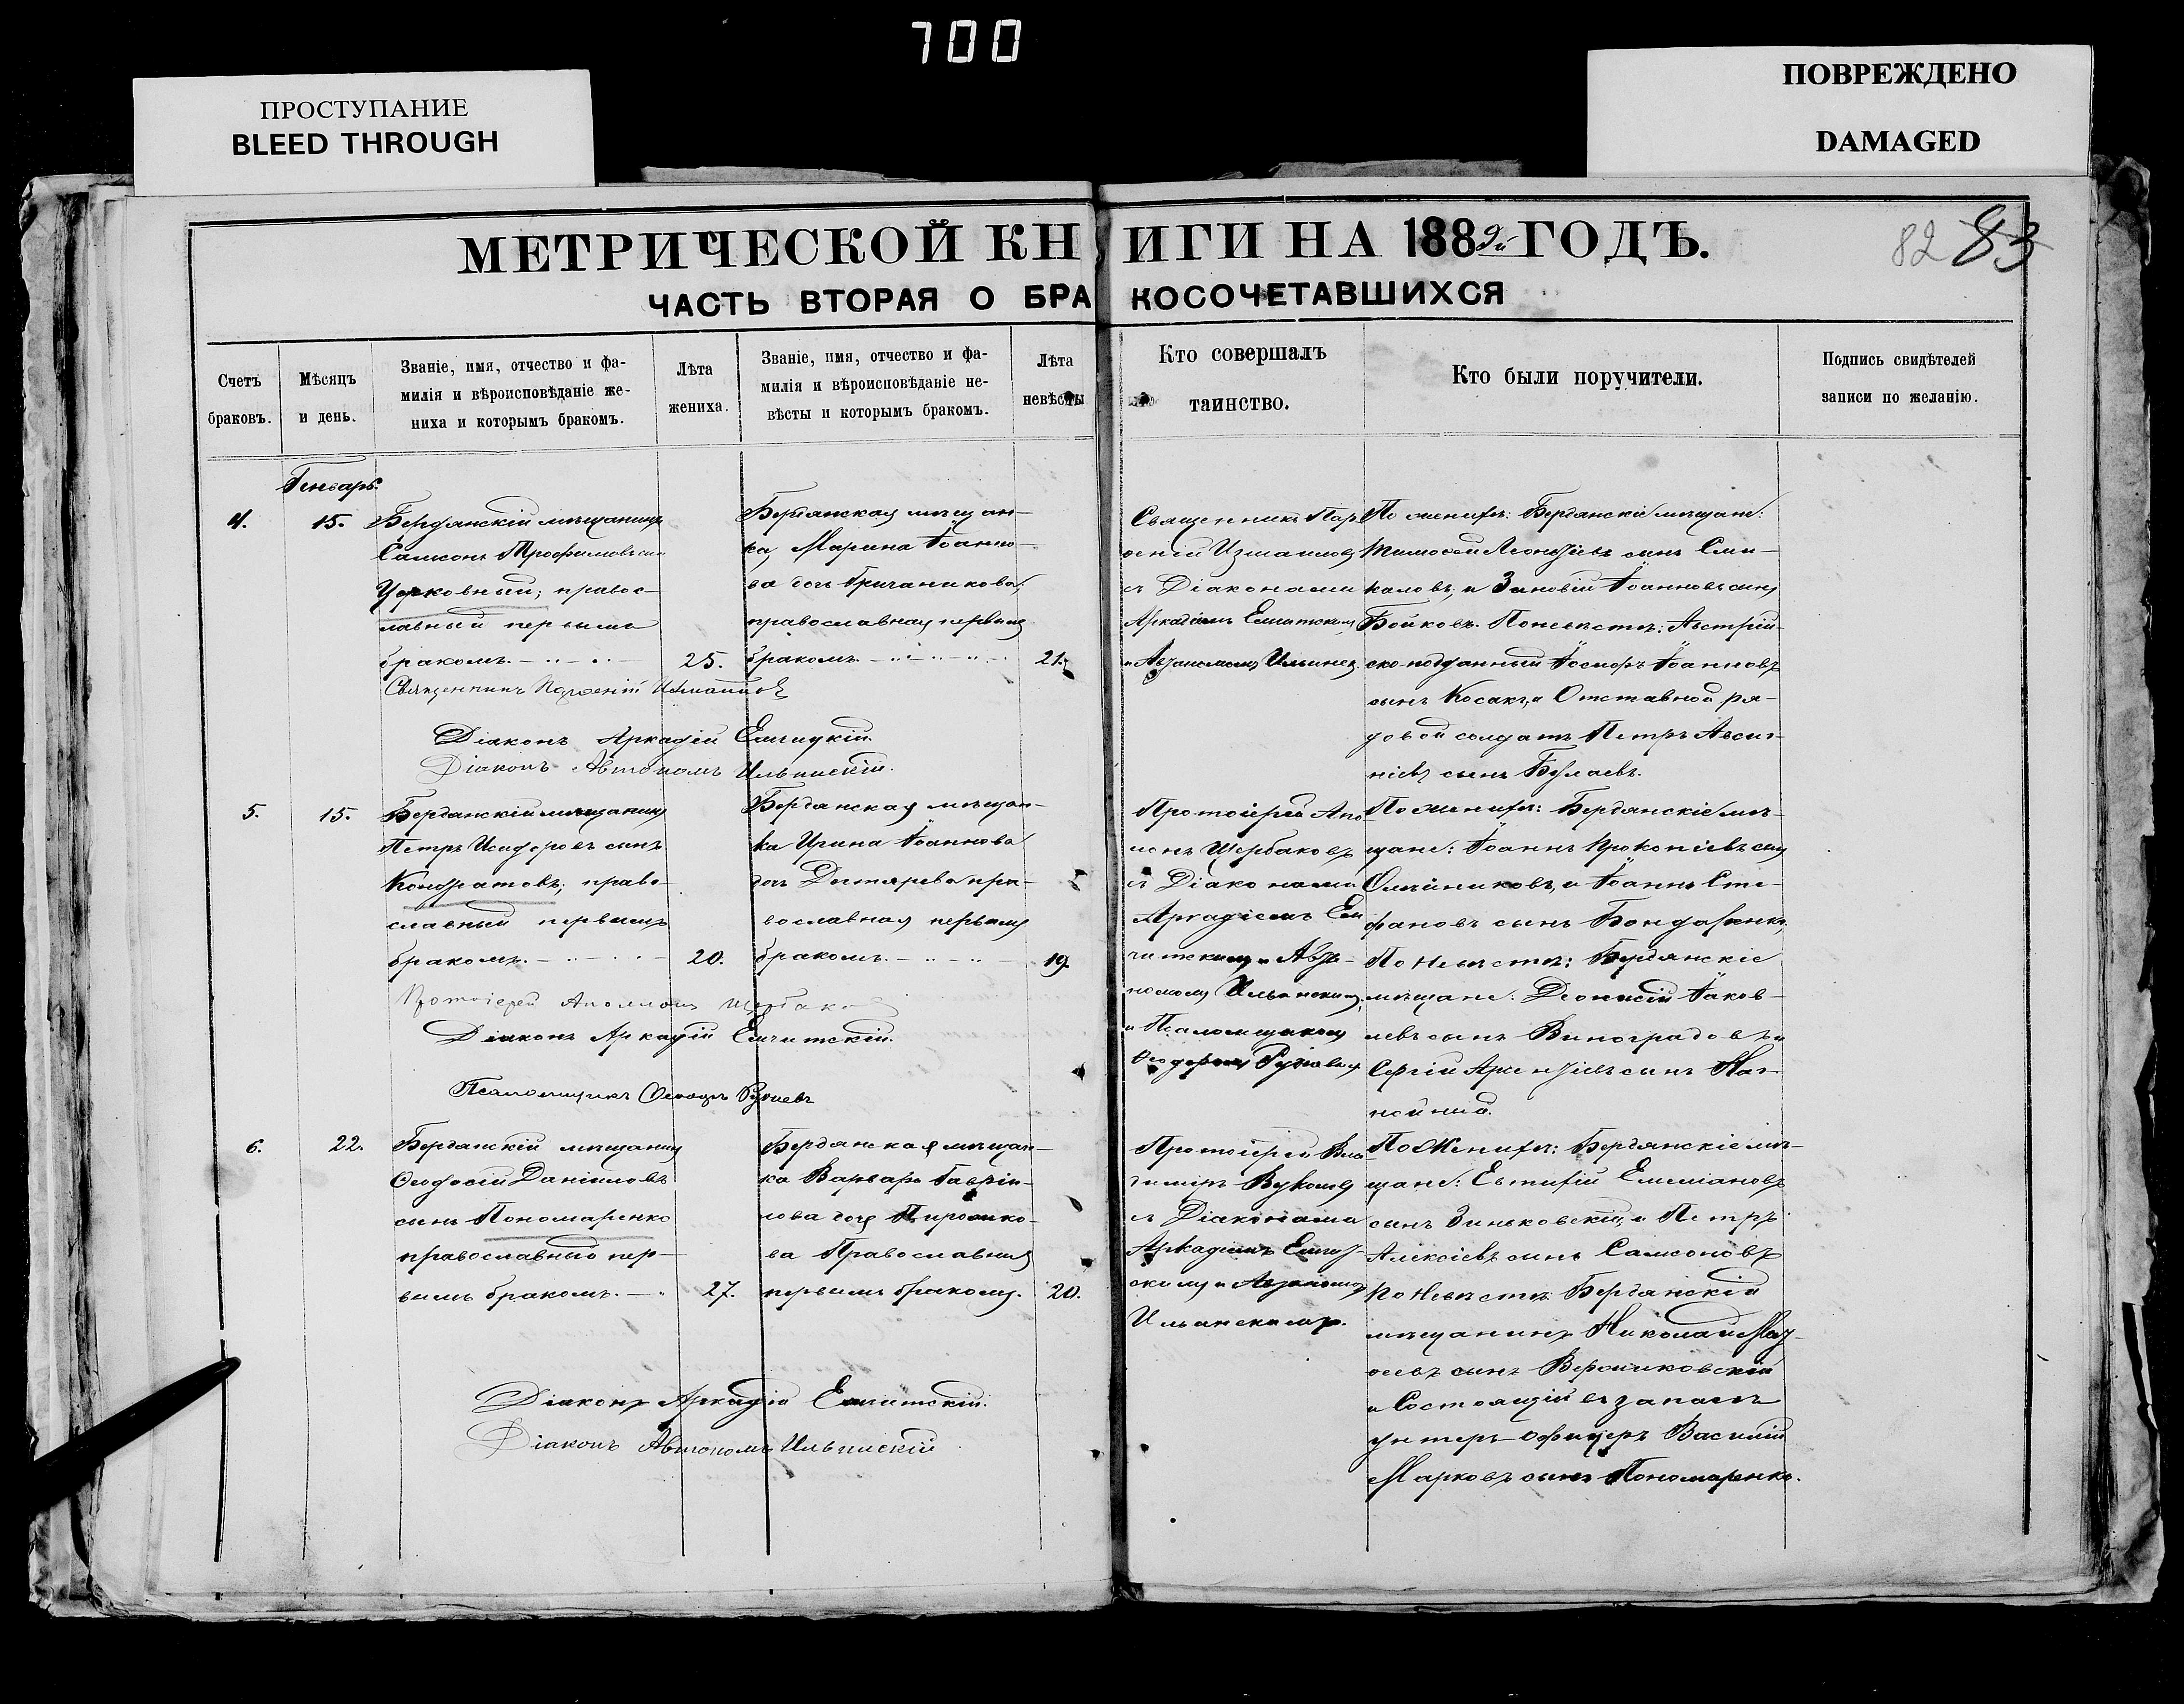 700
ПРОСТУПАНИЕ
BLEED THROUGH
ПОВРЕЖДЕНО
DAMAGED
МЕТРИЧЕСКОЙ КНИГИ НА 1889й ГОДЪ.
82 83
ЧАСТЬ ВТОРАЯ О БРАКОСОЧЕТАВШИХСЯ
Счетъ
браковъ.
Мѣсяцъ
и день.
Званіе, имя, отчество и фа-
милія и вѣроисповѣданіе же-
ниха и которымъ бракомъ.
Лѣта
жениха.
Званіе, имя, отчество и фа-
милія и вѣроисповѣданіе не-
вѣсты и которымъ бракомъ.
Лѣта
невѣсты
Кто совершалъ
таинство.
Кто были поручители.
Подпись свидѣтелей
записи по желанію.
Генварь.
4.
15.
Бердянскій мѣщанинъ
Самсонъ Трофимовъ сынъ
Церковный; правос-
лавный первымъ
бракомъ.
25.
Бердянская мѣщан-
ка, Марина Іоанно-
ва дочь Гричаникова,
православная первымъ
бракомъ.
21.
Священникъ Пар-
ѳеній Измаиловъ
съ Діаконами
Аркадіемъ
и Автономомъ Ильинск.
По женихѣ: Бердянскіе мѣщане:
Тимоѳей Леонтіевъ сынъ
и Зиновій Іоанновъ сынъ
Бойковъ. По невѣстѣ: Австрій-
ско-подданный Іосифъ Іоанновъ
сынъ Косакъ, и Отставной ря-
довой солдатъ Петръ
сынъ
Священникъ Парѳеній Измаиловъ
Діаконъ Аркадій
Діаконъ Автономъ Ильинскій.
5.
15.
Бердянскій мѣщанинъ
Петръ Исидоровъ сынъ
Кондратовъ; право-
славный первымъ
бракомъ.
20.
Бердянская мѣщан-
ка Ирина Іоаннова
дочь Дегтярева пра-
вославная первымъ
бракомъ.
19.
Протоіерей Апо-
лонъ Щербаковъ
съ Діаконами
Аркадіемъ
и Авто-
номомъ Ильинскимъ,
и Псаломщикомъ
Ѳеодоромъ
По женихѣ: Бердянскіе мѣ-
щане: Іоаннъ Прокопіевъ сынъ
Олейниковъ, и Іоаннъ Сте-
фановъ сынъ Бондаренко,
По Невѣстѣ: Бердянскіе
мѣщане: Діонисій Іаков-
левъ сынъ Виноградовъ и
Сергій Арсентіевъ сынъ Наг-
Протоіерей Аполлонъ Щербаковъ
Діаконъ Аркадій
Псаломщикъ Ѳеодоръ
6.
22.
Бердянскій мѣщанинъ
Ѳеодосій Даніиловъ
сынъ Пономаренко
православный пер-
вымъ бракомъ.
27.
Бердянская мѣщан-
ка Варвара Гавріи-
лова дочь
ва Православная
первымъ бракомъ.
20.
Протоіерей Вла-
диміръ
съ Діаконами
Аркадіемъ
и Автономомъ
Ильинскимъ.
По Женихѣ: Бердянскіе мѣ-
щане: Евтифій Емеліановъ
сынъ Зиньковскій, и Петръ
Алексіевъ сынъ Самсоновъ
По Невѣстѣ: Бердянскій
мѣщанинъ Николай Мат-
ѳеевъ сынъ
и Состоящій въ запасѣ
унтеръ-офицеръ Василій
Марковъ сынъ Пономаренко.
Діаконъ Аркадій
Діаконъ Автономъ Ильинскій